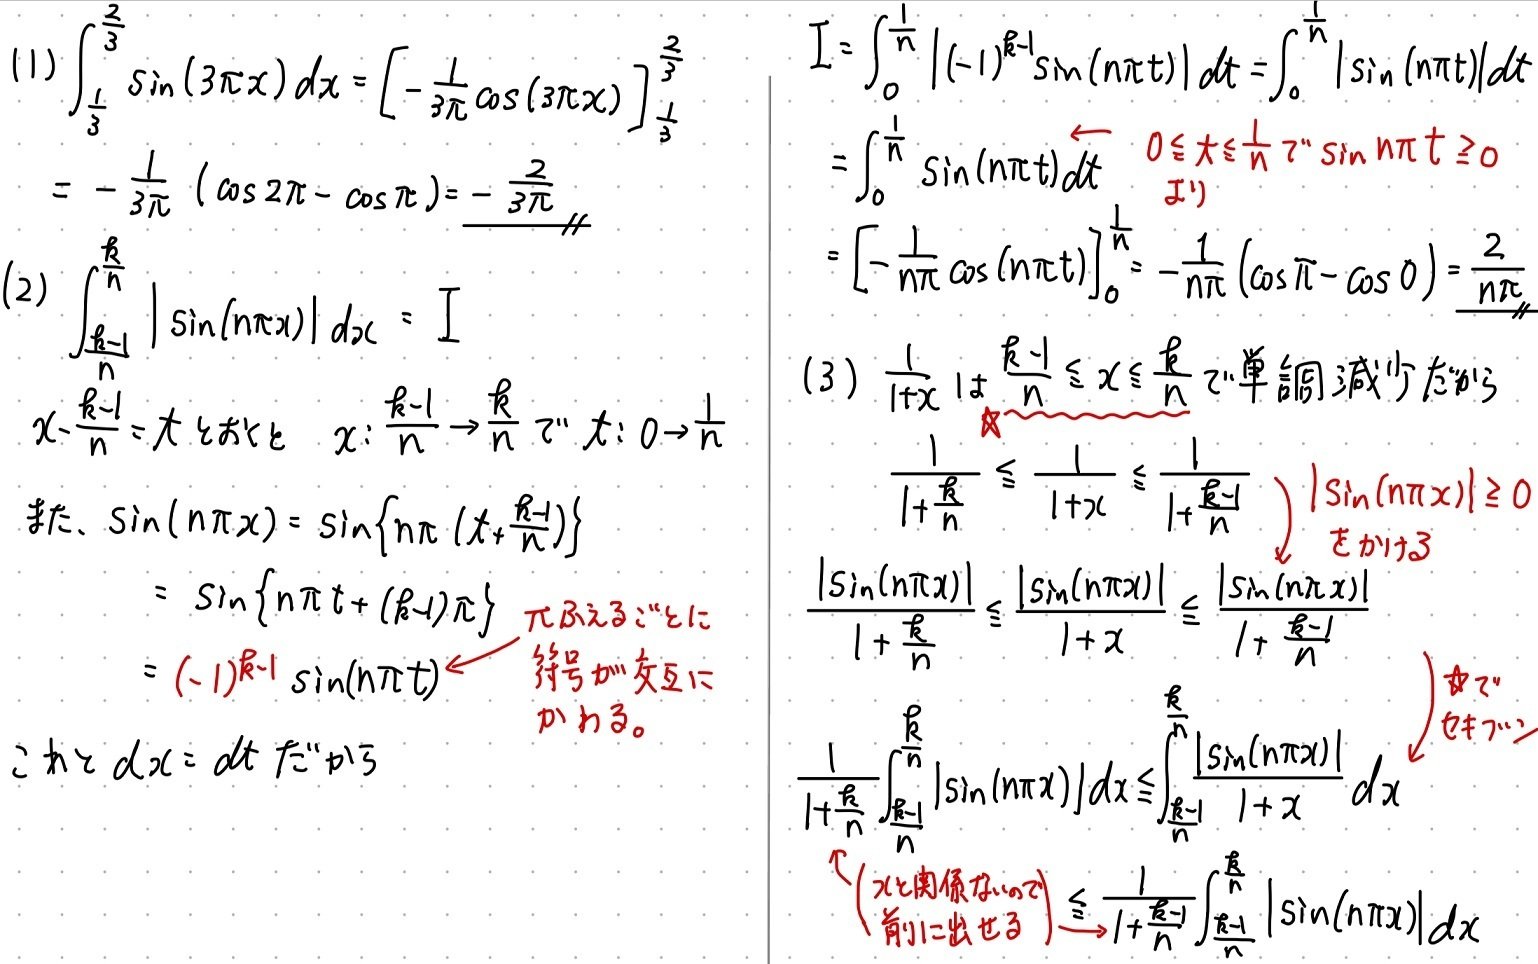 (1) ∫_{1/3}^{2/3} sin(3πx) dx = [-1/3π cos(3πx)]_{1/3}^{2/3}
= -1/3π (cos2π - cosπ) = -2/3π
(2) ∫_{k-1/n}^{k/n} |sin(nπx)| dx = I
x - k-1/n = t とおくと x: k-1/n → k/n で t: 0 → 1/n
また、sin(nπx) = sin{nπ(t + k-1/n)}
= sin{nπt + (k-1)π}
= (-1)^{k-1} sin(nπt)
πふえるごとに
符号が交互に
かわる。
これと dx = dt だから
I = ∫_0^{1/n} |(-1)^{k-1} sin(nπt)| dt = ∫_0^{1/n} |sin(nπt)| dt
= ∫_0^{1/n} sin(nπt) dt ← 0 ≦ t ≦ 1/n で sin nπt ≧ 0
より
= [-1/nπ cos(nπt)]_0^{1/n} = -1/nπ (cosπ - cos0) = 2/nπ
(3) 1/1+x は k-1/n ≦ x ≦ k/n で単調減少だから
☆
1/1+k/n ≦ 1/1+x ≦ 1/1+k-1/n
|sin(nπx)| ≧ 0
をかける
|sin(nπx)|/1+k/n ≦ |sin(nπx)|/1+x ≦ |sin(nπx)|/1+k-1/n
☆で
セキブン
1/1+k/n ∫_{k-1/n}^{k/n} |sin(nπx)| dx ≦ ∫_{k-1/n}^{k/n} |sin(nπx)|/1+x dx
(xと関係ないので
前に出せる)
≦ 1/1+k-1/n ∫_{k-1/n}^{k/n} |sin(nπx)| dx